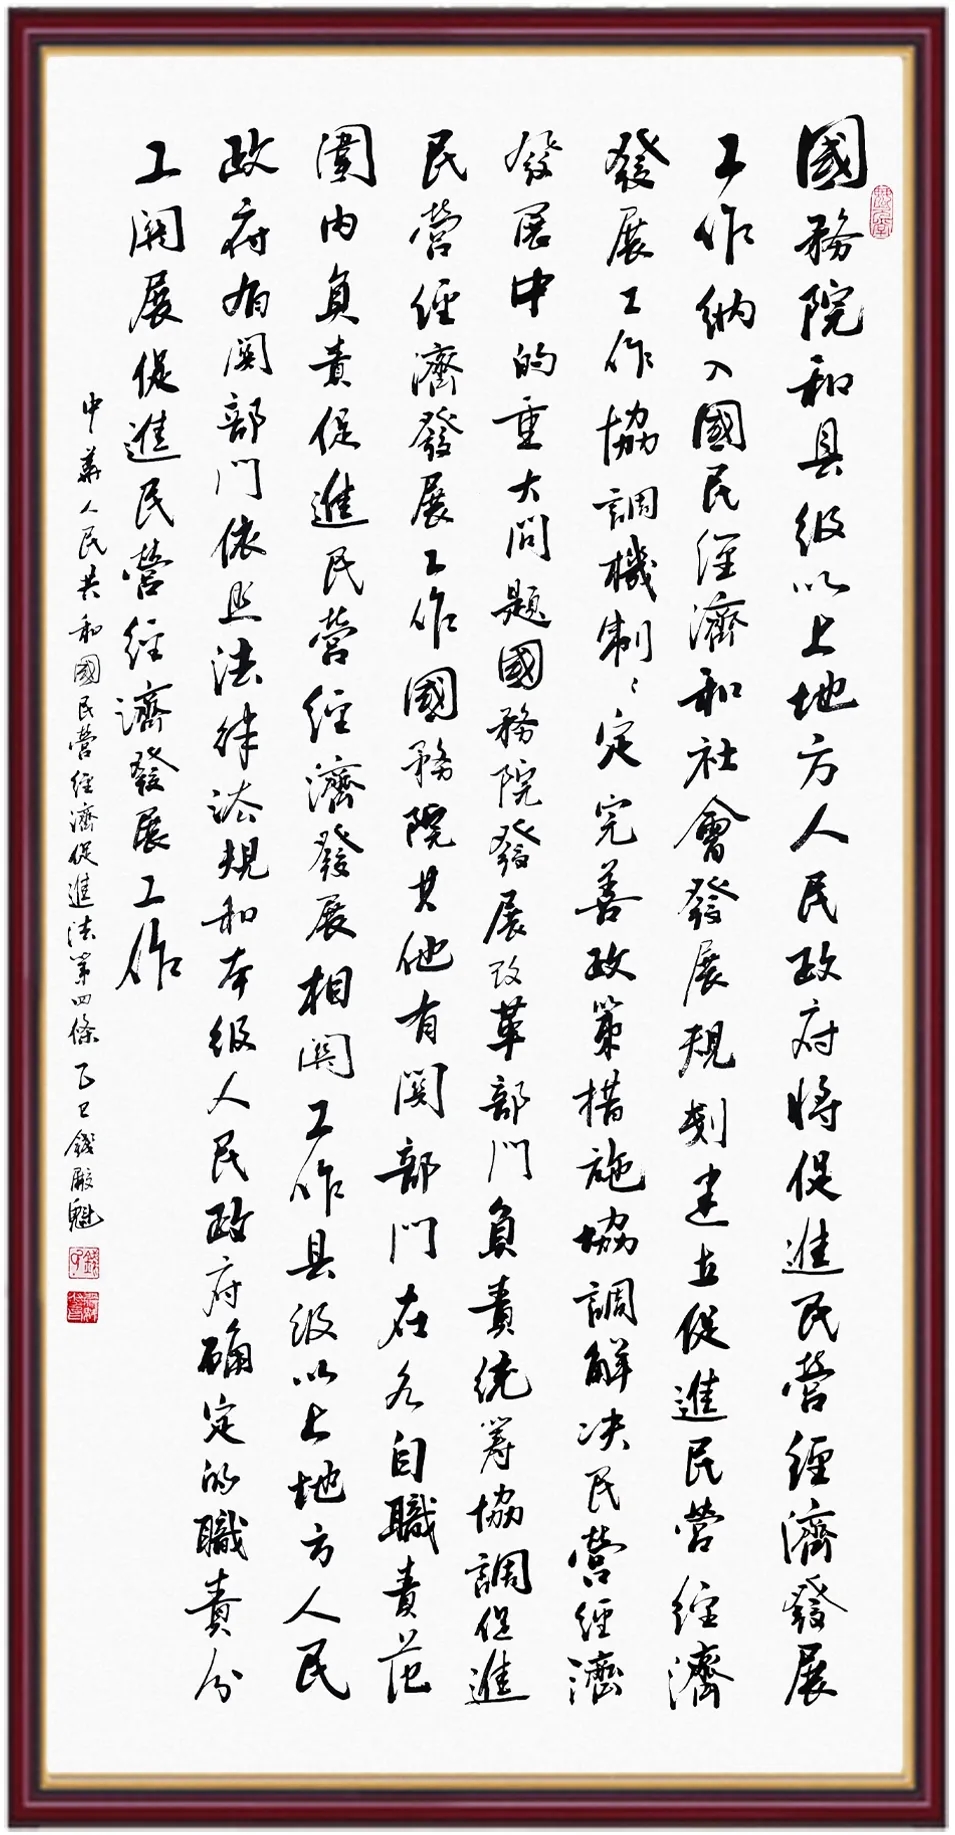 國務院和县级以上地方人民政府将促進民营经濟發展
工作纳入國民经濟和社會發展規劃建立促進民营经濟
發展工作協調機制〻定完善政策措施協調解决民营经濟
發展中的重大问題國務院發展改革部门負責统筹協調促進
民营经濟發展工作國務院其他有関部门在各自職責范
圍内負責促進民营经濟發展相関工作县级以上地方人民
政府有関部门依照法律法規和本级人民政府确定的職責分
工開展促進民营经濟發展工作
中華人民共和國民营经濟促進法第四條乙巳錢殿魁